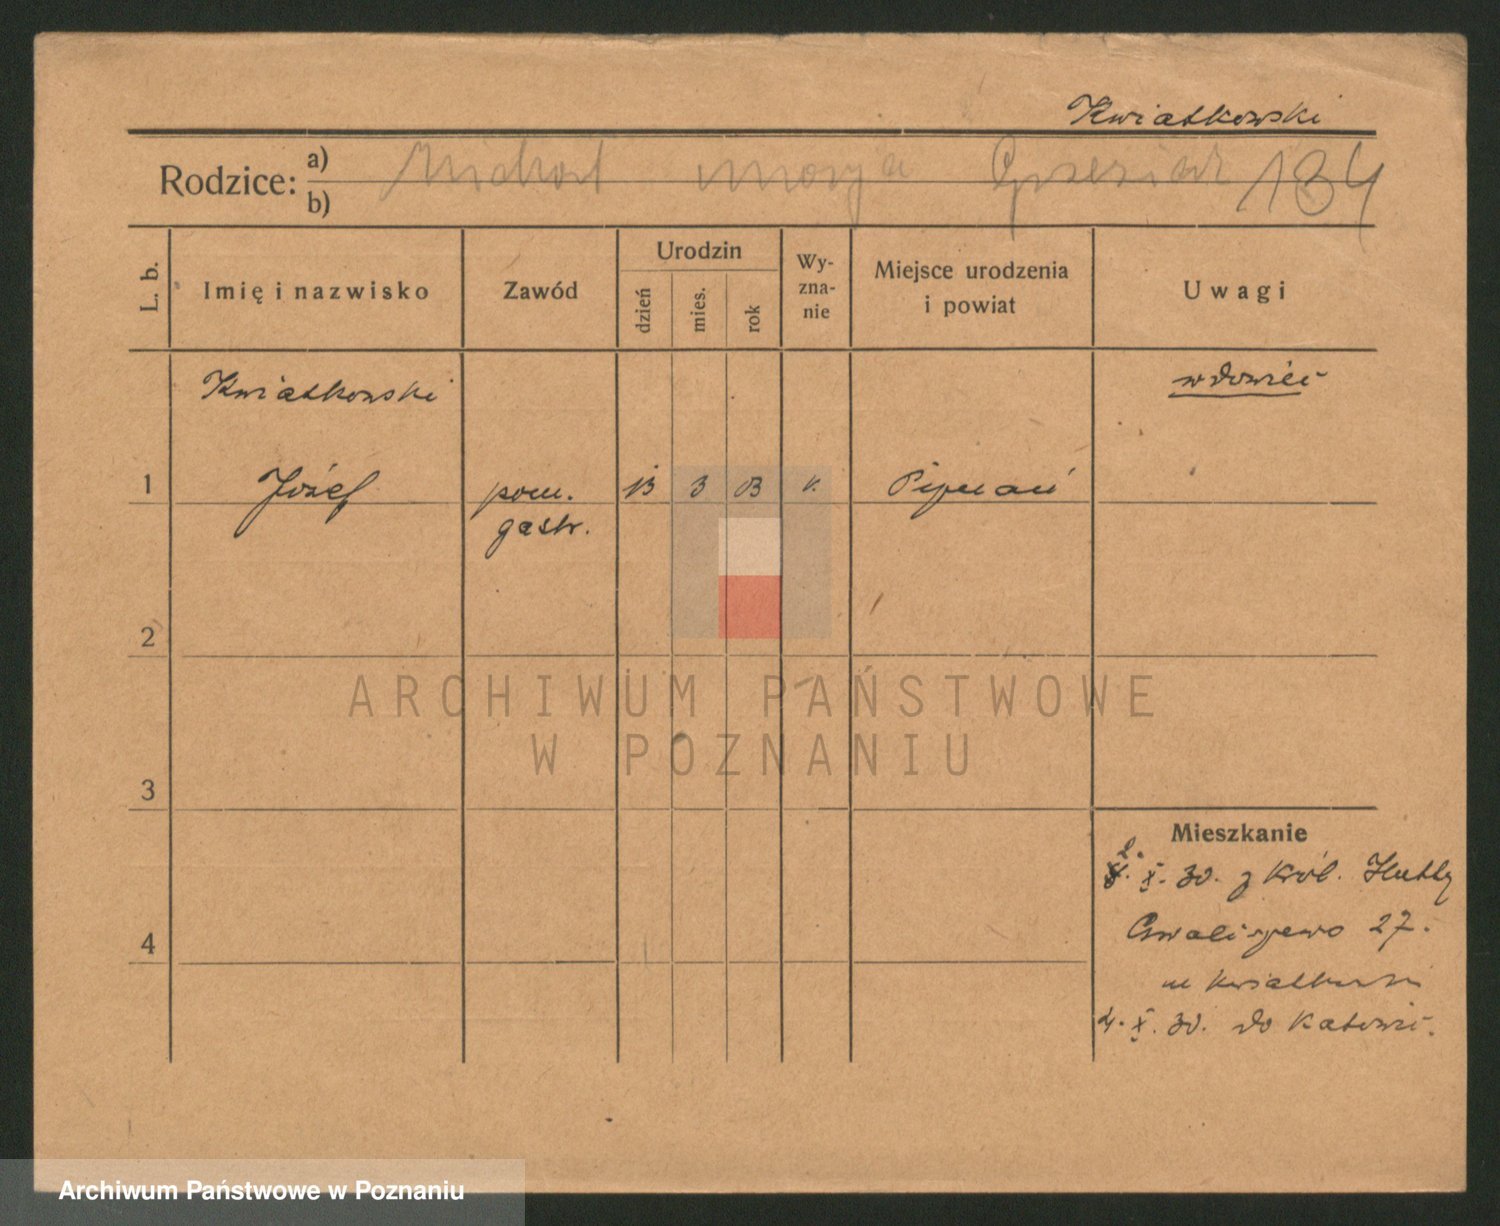 Kwiatkowski
Rodzice: a) Michał Marja Grzesiak 134
b)
L. b. Imię i nazwisko Zawód Urodzin dzień mies. rok Wy-zna-nie Miejsce urodzenia i powiat Uwagi
Kwiatkowski wdowiec
1 Józef pom. 13 3 03 k.
gastr.
2
ARCHIWUM PAŃSTWOWE
W POZNANIU
3
Mieszkanie
2. X. 30. z Król. Hutty
4 Chwaliszewo 27.
u Kwiatkowski
4. X. 30. do Katowic.
Archiwum Państwowe w Poznaniu